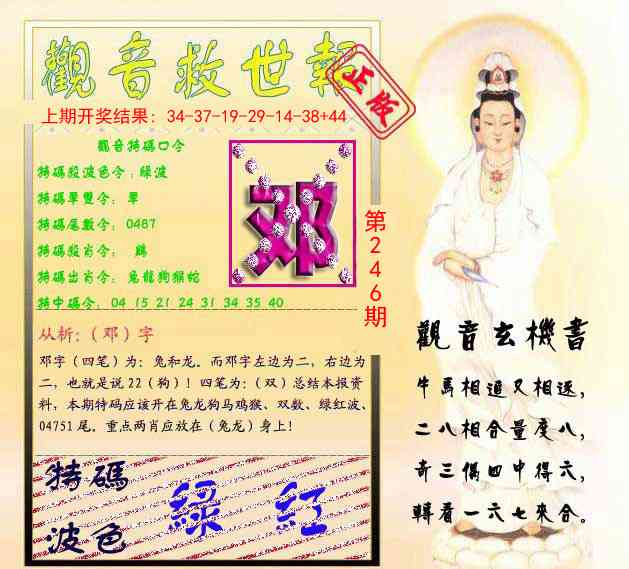 觀音救世報
正版
上期开奖结果：34-37-19-29-14-38+44
觀音特碼口令
特碼殺波色令：綠波
特碼單雙令：單
特碼尾數令：0487
特碼殺肖令：鷄
特碼出肖令：兔龍狗猴蛇
特中碼令：04 15 21 24 31 34 35 40
邓
第246期
从析：（邓）字
邓字（四笔）为：兔和龙。而邓字左边为二，右边为
二，也就是说22（狗）！四笔为：（双）总结本报资
料，本期特码应该开在兔龙狗马鸡猴、双数、绿红波、
04751尾。重点两肖应放在（兔龙）身上！
特碼
波色
綠 紅
觀音玄機書
牛馬相追又相逐，
二八相合量度八，
奇三偶四中得六，
轉看一六七來合。